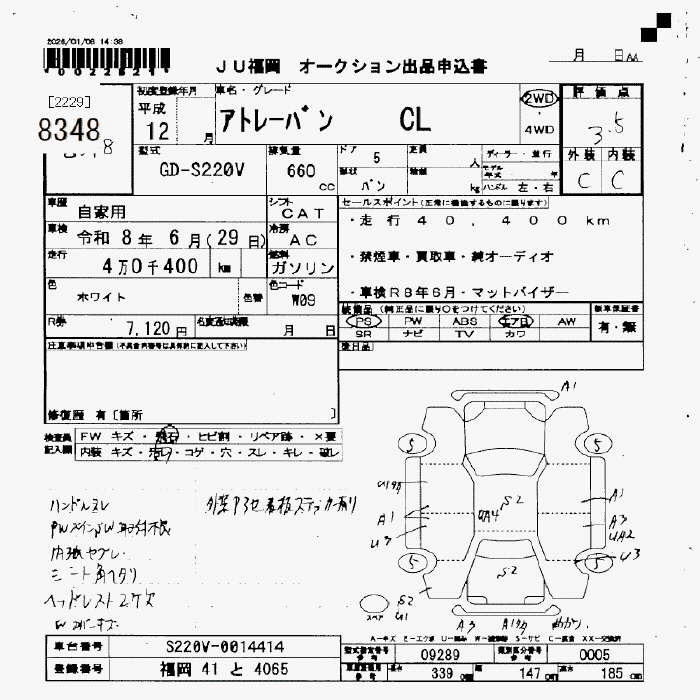 2026/01/08 14:38
*00228221*
JU福岡 オークション出品申込書
月 日
[2229]
8348
初度登録年月
平成
12 月
車名・グレード
アトレーバン CL
2WD
4WD
評価点
3.5
外装 内装
C C
型式
GD-S220V
排気量
660 cc
ドア
5
定員
人
形状
バン
kg
ディーラー・並行
モデル年式 年
ハンドル 左・右
車歴
自家用
シフト
CAT
車検
令和 8年 6月(29日)
冷房
AC
走行
4万0千400 km
燃料
ガソリン
色
ホワイト
色替
色コード
W09
R券
7,120円
名義変更期限
月 日
セールスポイント(正常に機能するものに限ります)
・走行40,400km
・禁煙車・買取車・純オーディオ
・車検R8年6月・マットバイザー
装備品(純正品に限り○をつけてください)
PS PW ABS エアB AW
SR ナビ TV カワ
新車保証書
有・無
後日品
注意事項申告欄(不具合内容等は具体的に記入して下さい)
修復歴 有〔箇所 〕
検査員記入欄
FW キズ・飛石・ヒビ割・リペア跡・×要
内装 キズ・汚レ・コゲ・穴・スレ・キレ・破レ
ハンドルスレ
外装アラセ 看板ステッカー有り
ヘッドレスト2ケ欠
A1
5 5
A1
S2
A1
UA4
A3
UA2
U3
U3
5 5
S2
S2
U1
スペア
A3
A1
A-キズ E-エクボ U-凹み W-波潤跡 S-サビ C-腐食 XX-交換済
車台番号
S220V-0014414
登録番号
福岡 41 と 4065
型式指定番号 参考
09289
類別区分番号 参考
0005
長さ 339 cm
幅 147 cm
高さ 185 cm